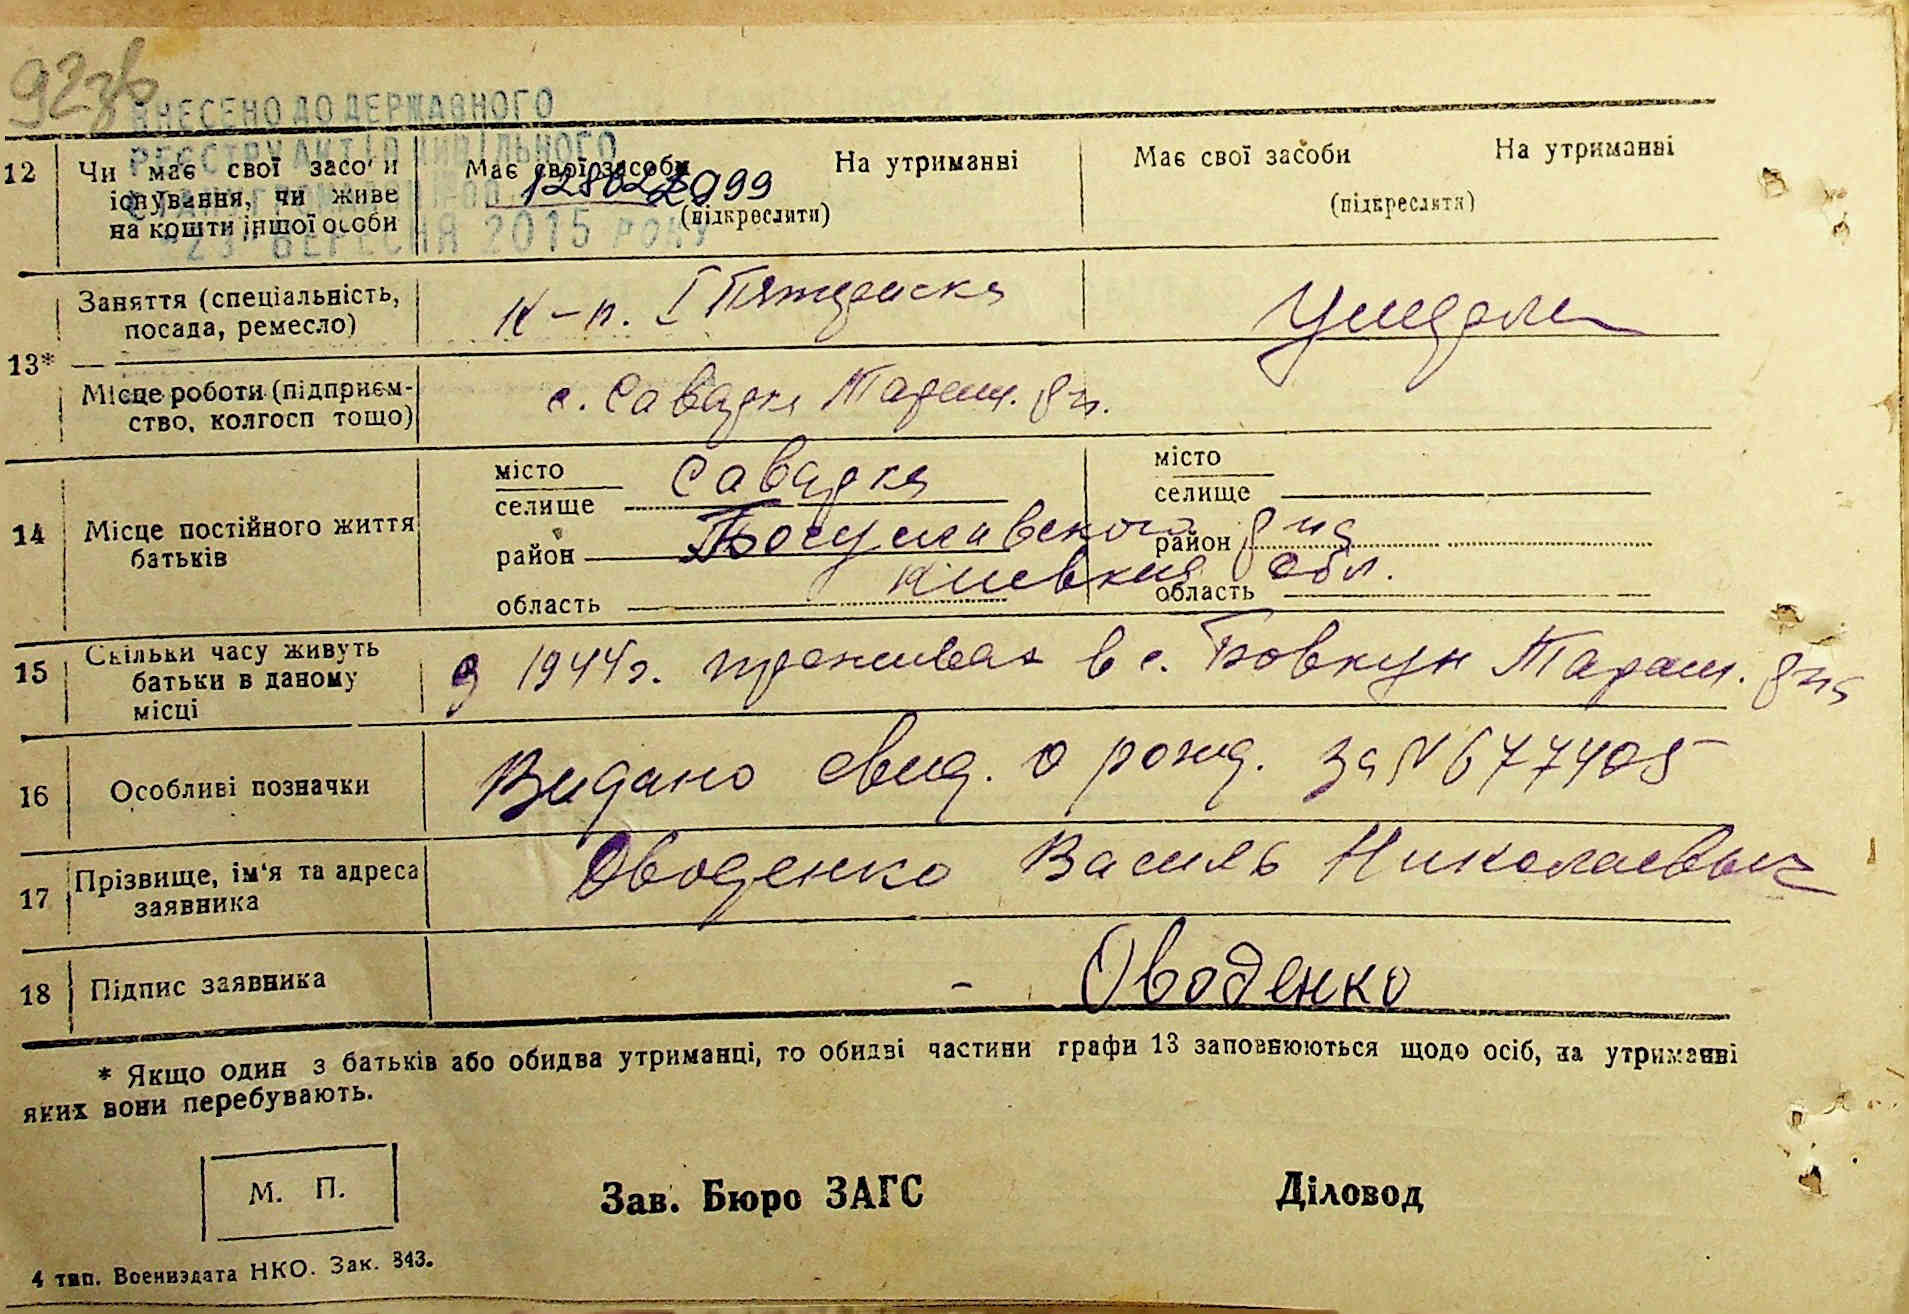 923в
ВНЕСЕНО ДО ДЕРЖАВНОГО
РЕЄСТРУ АКТІВ ЦИВІЛЬНОГО
12 Чи має свої засоби Має свої засоби На утриманні Має свої засоби На утриманні
існування, чи живе (підкреслити) (підкреслити)
на кошти іншої особи
ВЕРЕСНЯ 2015 РОКУ
13* Заняття (спеціальність, к-п.
посада, ремесло)
Місце роботи (підприєм- с. Савадка Тараш. р-н.
ство, колгосп тощо)
14 Місце постійного життя
батьків
місто Савадка місто
селище селище
район Богуславского р-на район
область Киевкия обл. область
15 Скільки часу живуть 1944г. проживал в с. Бовкун Тараш. р-на
батьки в даному
місці
16 Особливі позначки Видано свид. о рожд. за № 677405
17 Прізвище, ім‘я та адреса Оводенко Василь Николаевич
заявника
18 Підпис заявника - Оводенко
* Якщо один з батьків або обидва утриманці, то обидві частини графи 13 заповнюються щодо осіб, на утриманні
яких вони перебувають.
М. П.
Зав. Бюро ЗАГС Діловод
4 тип. Воениздата НКО. Зак. 343.